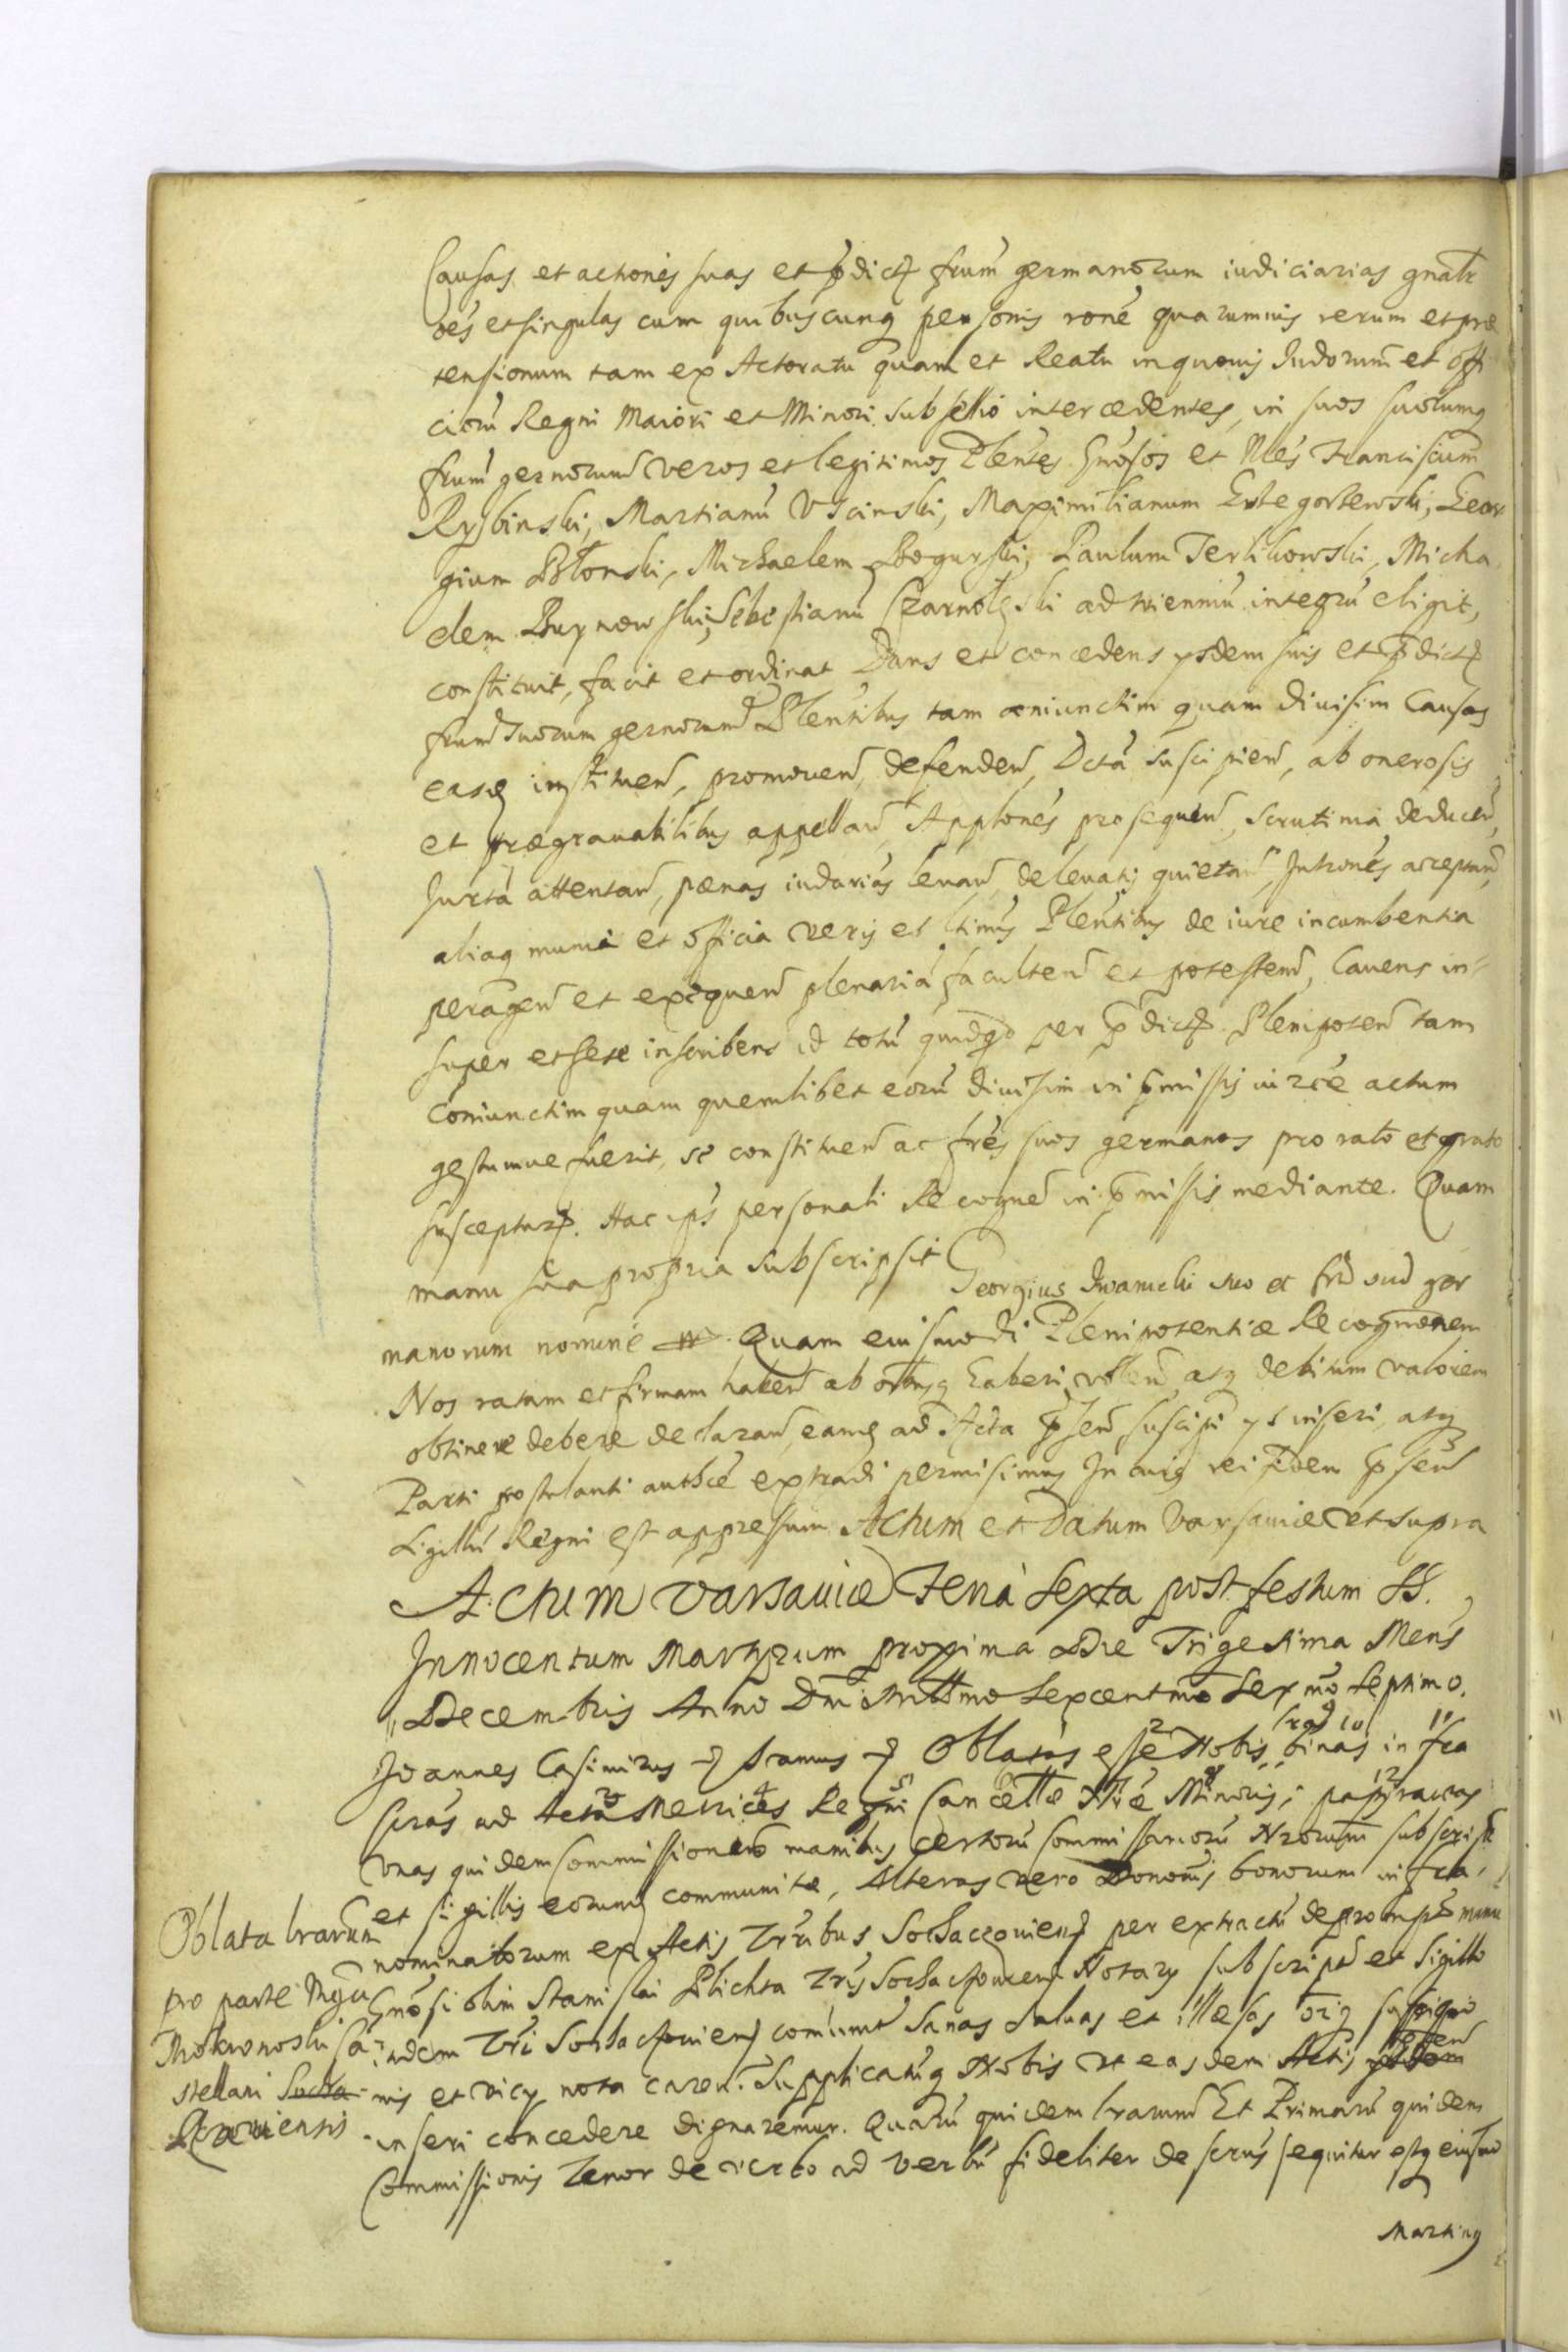 Causas et actiones suas et pdict frum germanorum iudiciarias gnatr
oes et singulas cum quibuscunq personis rone quarumvis rerum et præ
tensionum tam ex Actoratu quam et Reatu in quovis Judiorum et offi
cioru Regni Maiori et Minori subsellio intercedentes, in suos suorumq
frum gernorum veros et legitimos Plentes Gnosos et Nles Franciscum
Rysbinski, Martianu Vscinski, Maximilianum Geor
gium Błonski, Michaelem Bogurski, Paulum Terlikowski, Micha
elem Buynowski, Sebestianu Czarnolęski ad trienniu integru eligit,
constituit, facit et ordinat Dans et concedens ysdem suis et pdict
frum suorum gernorum Plentibus tam coniunctim quam divisim Causas
easq instituen, promoven, defenden, Dcta suscipien, ab onerosis
et prægravatibilibus appellan, Applones prosequen, Scrutinia deducen,
Jurta attentan, pænas iudarias levan, de levatis quietan, Intrones acceptan,
aliaq munia et officia veris et ltimis Plentibus de iure incumbentia
peragen et exequen plenaria facultem et potestem, Cavens in=
super et sese inscribens id totu quidqd per pdict Plenipoten tam
coniunctim quam quemlibet eoru divisim in pmissis in rce actum
gestumve fuerit, se constituen ac fres suos germanos pro rato et grato
suscepturos. Hac ips personali Recogne in pmissis mediante. Quam
manu sua propria subscripsit Georgius Iwanicki suo et frd sud ger
manorum nomine Quam eiusmodi Plenipotentiæ Recognonem
Nos ratam et firmam haben ab oibusq haberi volen, atq debitum valorem
obtinere debere declaran, eamq ad Acta psen suscipi ys inseri, atq
Parti postulanti authce extradi permisimus In cuiq rei fidem psen
Sigillu Regni est appressum Actum et Datum Varsaviæ ut supra
Actum Varsaviæ Feria Sexta post festum SS.
Innocentum Martyrum proxima Die Trigesima Mens
Decembris Anno Dni Millmo Sexcentmo Sexmo Septimo.
Joannes Casimirus Oblatas esse Nobis binas infra
scras ad Acta Metrices Regni Cancellæ Nræ Minoris, papyraceas
Unas quidem Commissionem manibus certoru Commissarioru Nrorum subscript
et sigillis eorum communitæ, Alteras vero Dononis bonorum infra
nominatorum ex Actis Trribus Sochaczovien per extractu depromptu manu
Gnosi olim Stanislai Plichta Tris Sochaczovien Notarij subscript et sigillo
eiudem Trri Sochaczovien comunit Sanas salvas et illæsas oiq suspicio
nis et vicij nota caren. Supplicatuq Nobis ut easdem Actis
inseri concedere dignaremur. Quaru quidem lrarum Et Primaru quidem
Commissionis Tenor de verbo ad verbu fideliter descrius sequitur estq eiusmo
Martinq
Oblata lrarum
pro parte Mgci
Mokronoski Ca
stellani Socha
Ravensis